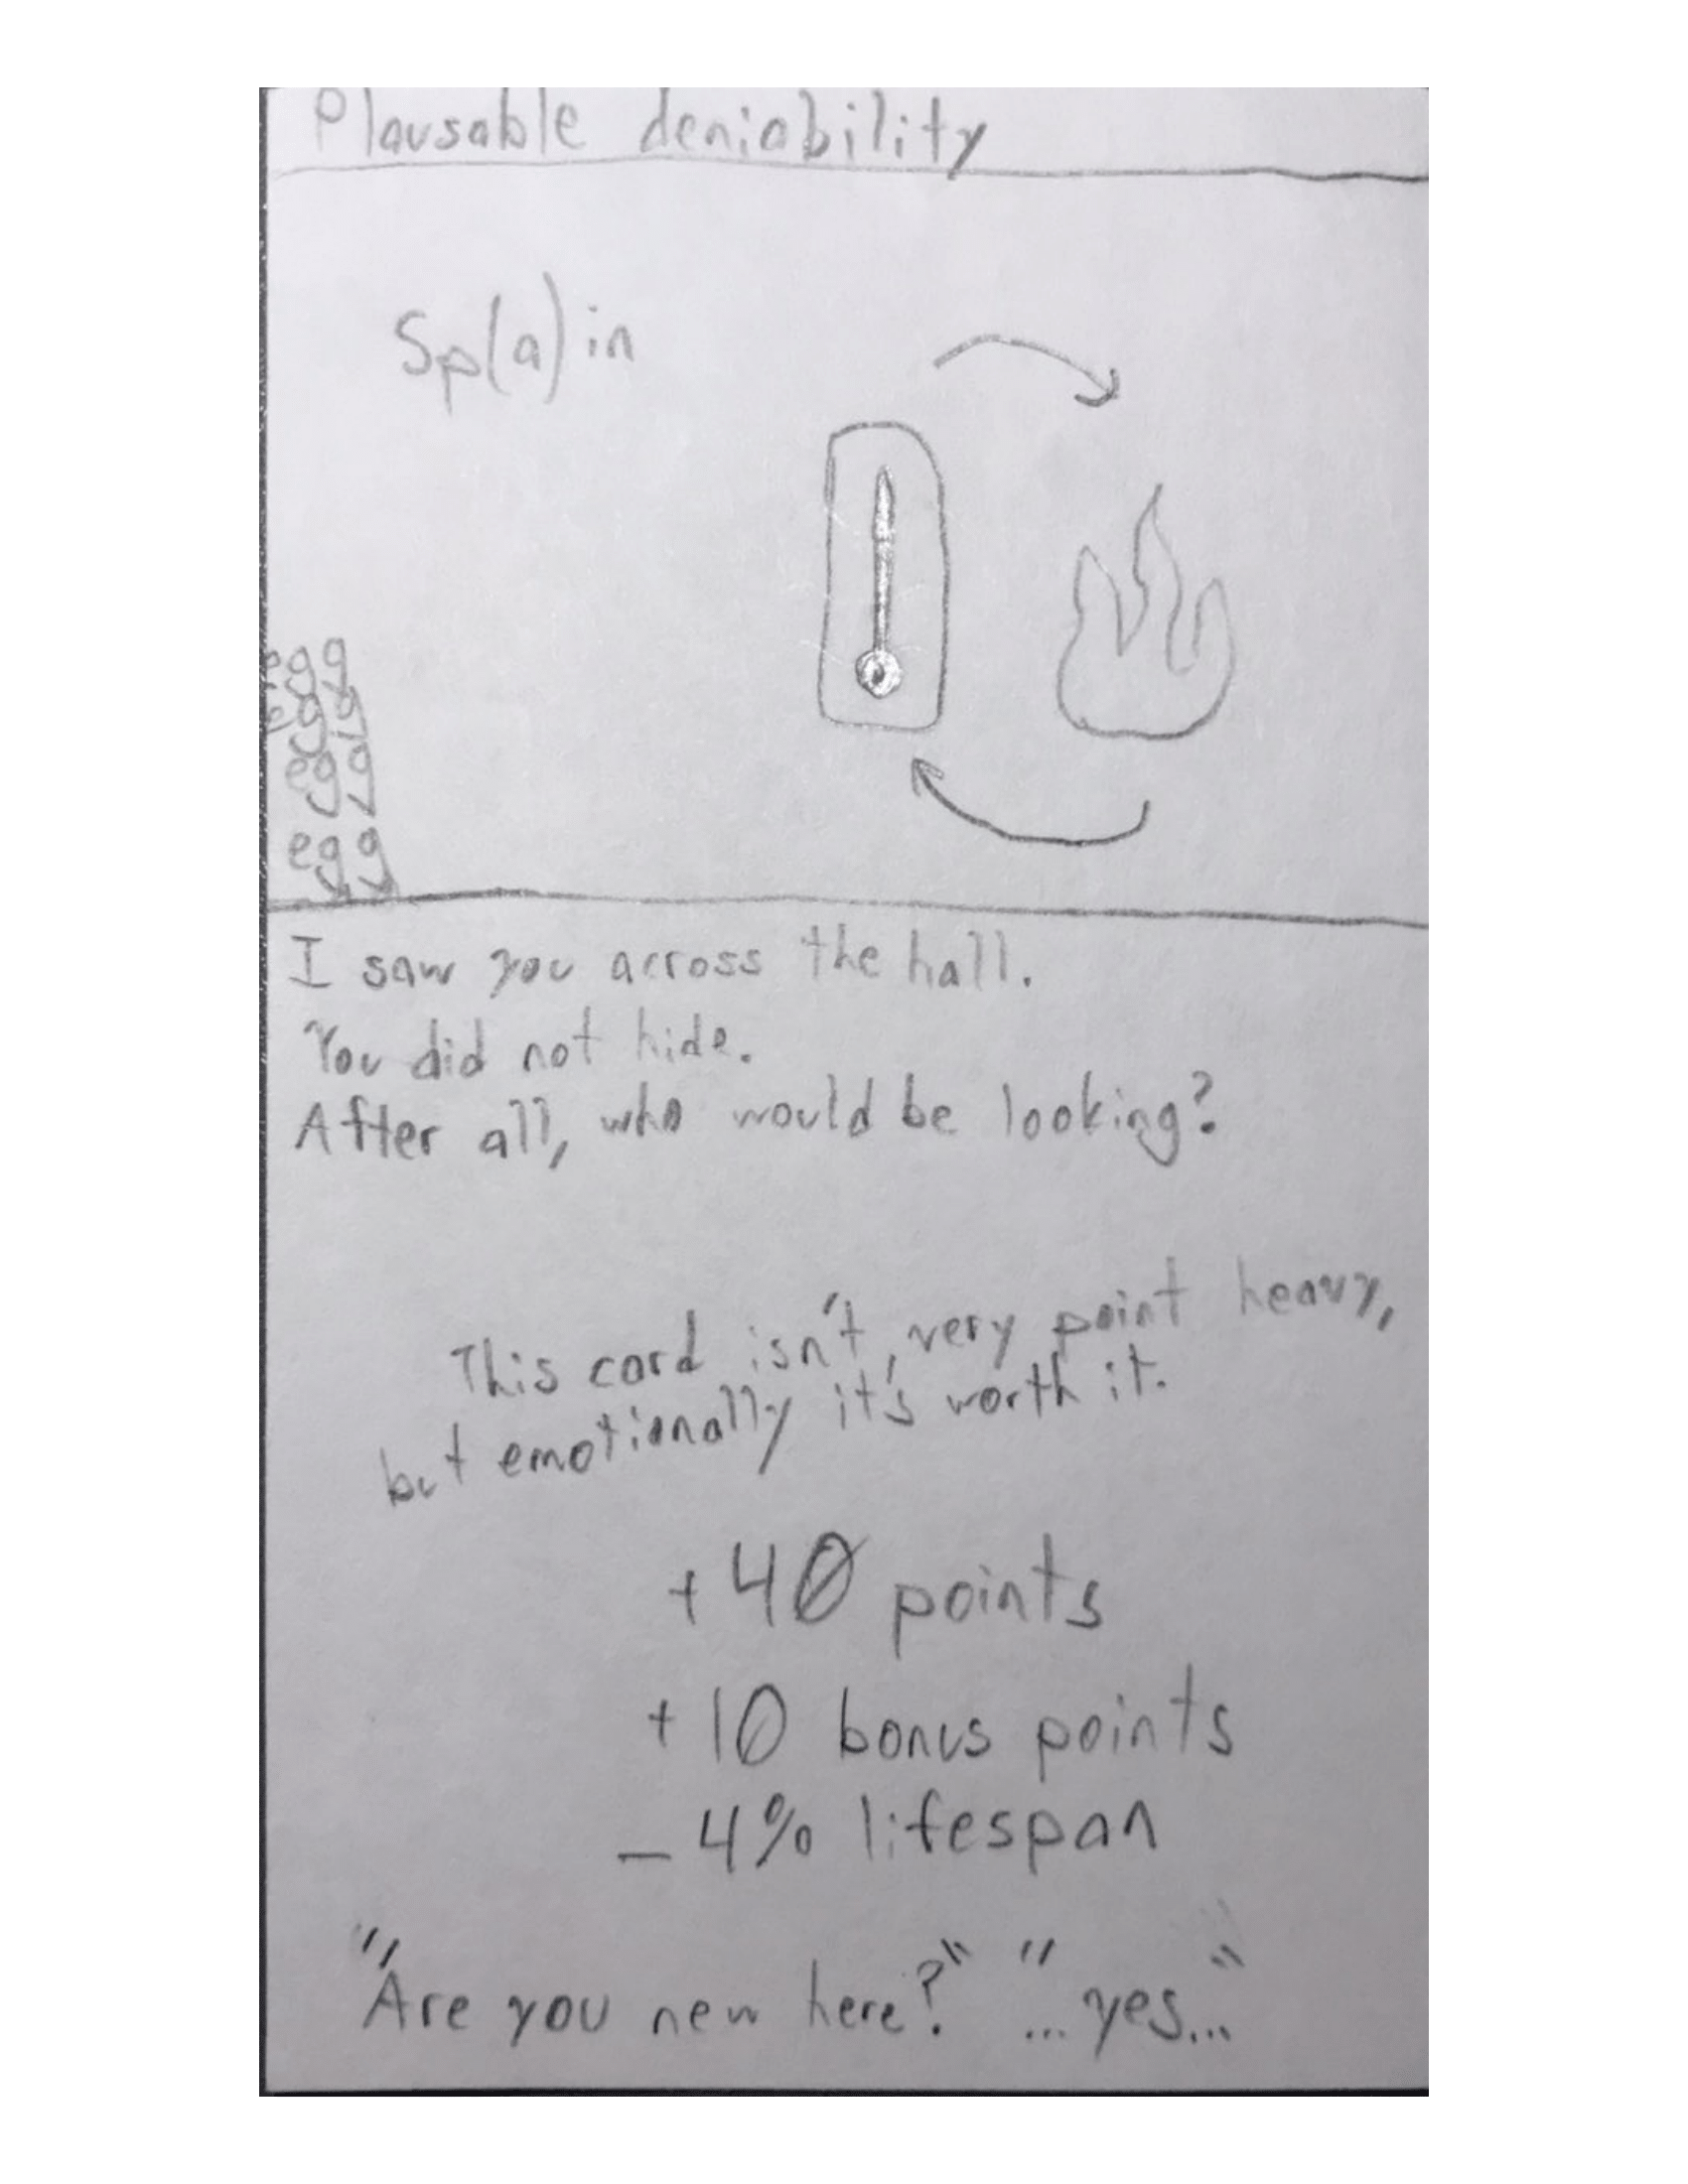 Plausable deniability
Sp(a)in
egg
egg
egg
egg
I saw you across the hall.
You did not hide.
After all, who would be looking?
This card isn't very point heavy,
but emotionally it's worth it.
+40 points
+10 bonus points
-4% lifespan
"Are you new here?" "...yes..."